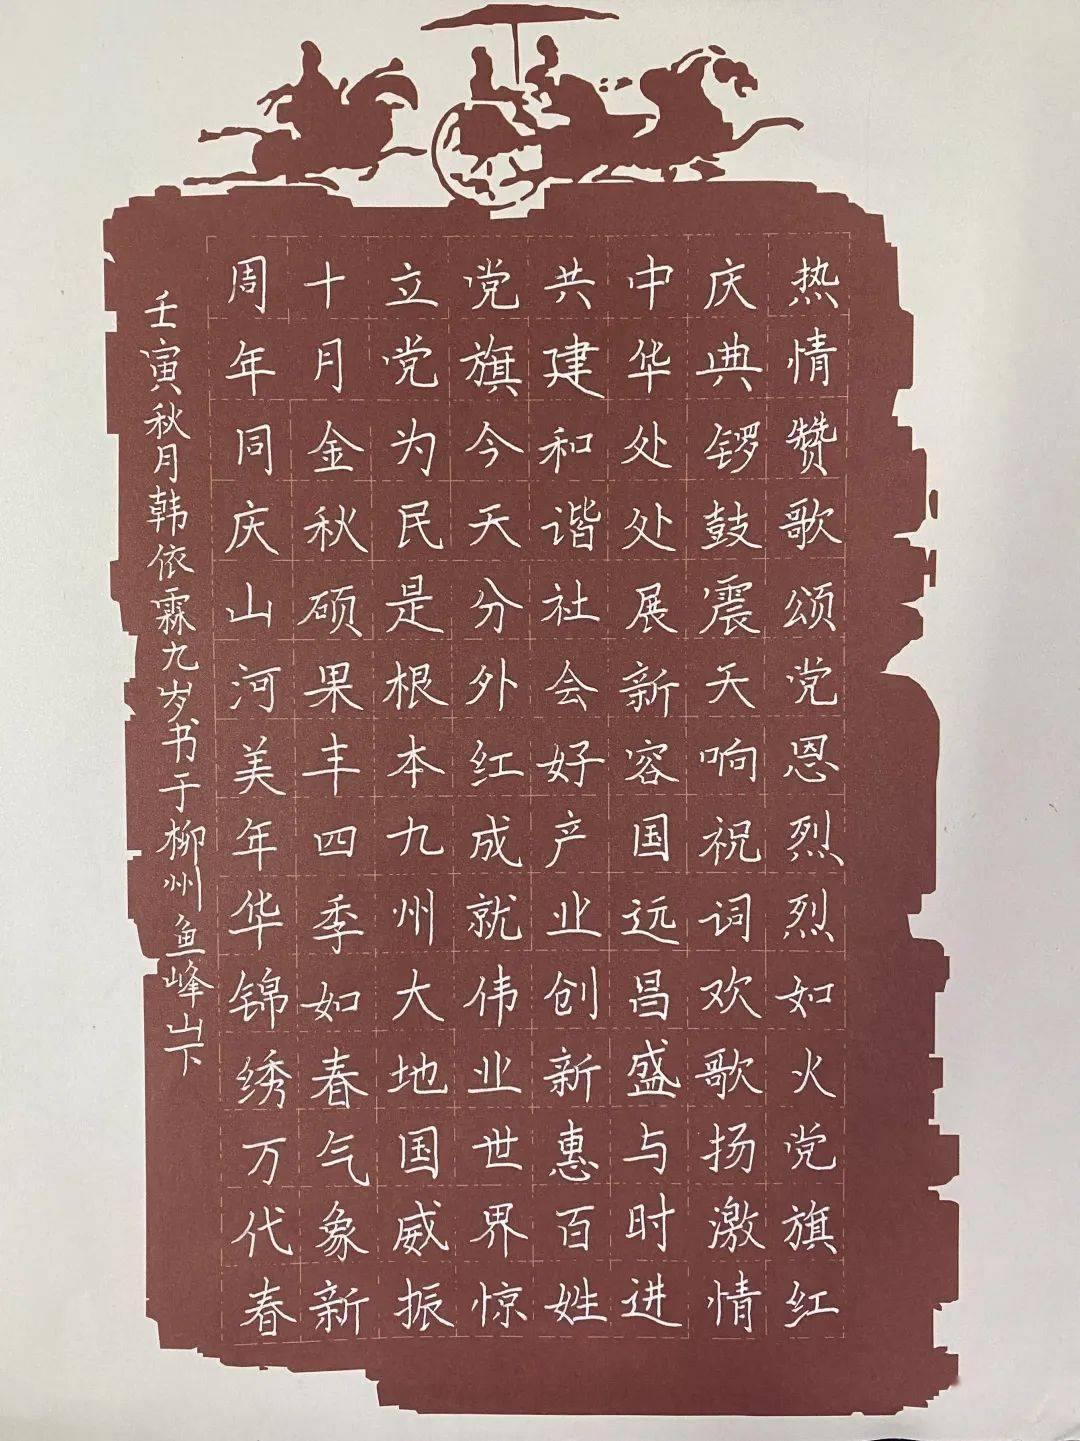 热情赞歌颂党恩烈烈如火党旗红
庆典锣鼓震天响祝词欢歌扬激情
中华处处展新容国远昌盛与时进
共建和谐社会好产业创新惠百姓
党旗今天分外红成就伟业世界惊
立党为民是根本九州大地国威振
十月金秋硕果丰四季如春气象新
周年同庆山河美年华锦绣万代春
壬寅秋月韩依霖九岁书于柳州鱼峰山下